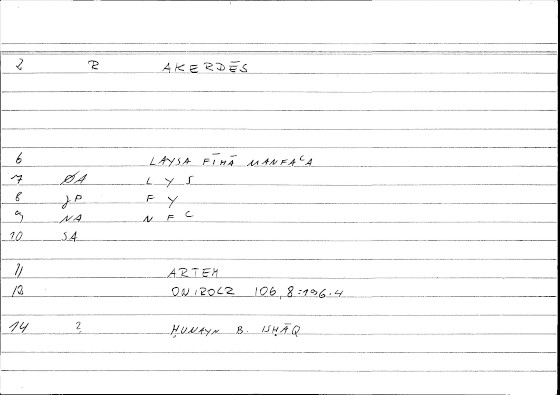 2 R AKERDĒS
6 LAYSA FĪHĀ MANFAʿA
7 ØA L Y S
8 JP F Y
9 NA N F ʿ
10 SA
11 ARTEM
12 ONIROCR 106,8:196.4
14 2 ḤUNAYN B. ISḤĀQ